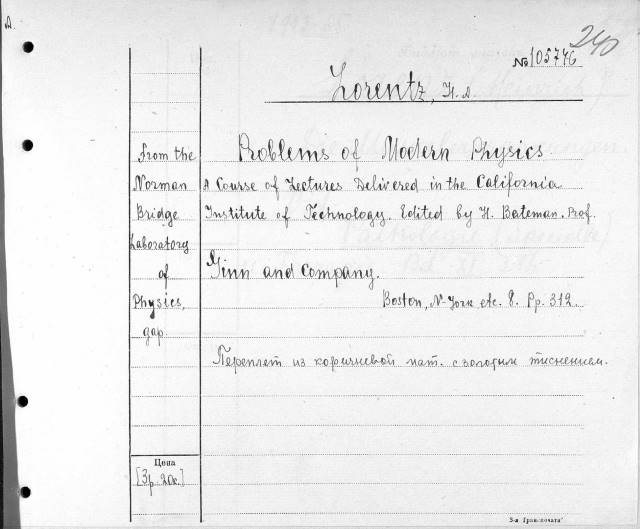 A.
240
№ 105746
Lorentz, H. A.
Problems of Modern Physics
A Course of Lectures Delivered in the California
Institute of Technology. Edited by H. Bateman. Prof.
Ginn and Company.
Boston, N-York etc. 8. Pp. 312.
Переплет из коричневой мат. с золотым тиснением.
From the
Norman
Bridge
Laboratory
of
Physics,
дар.
Цена
[3р. 20к.]
3-я Гранпечата"